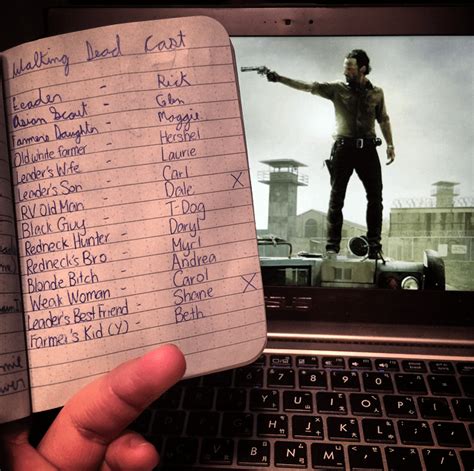 Walking Dead Cast
Leader - Rick
Asian Scout - Glen
Farmers Daughter - Maggie
Old white farmer - Hershel
Leader's Wife - Laurie
Leader's Son - Carl
RV Old Man - Dale X
Black Guy - T-Dog
Redneck Hunter - Daryl
Redneck's Bro - Myrl
Blonde Bitch - Andrea
Weak Woman - Carol
Leader's Best Friend - Shane X
Farmer's Kid (Y) - Beth